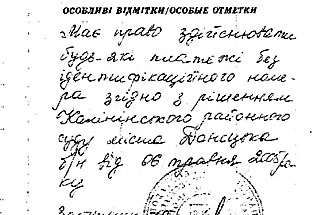 ОСОБЛИВІ ВІДМІТКИ/ОСОБЫЕ ОТМЕТКИ
Має право здійснювати
будь-які платежі без
ідентифікаційного номе-
ра згідно з рішенням
Калінінського районного
суду міста Донецька
б/н від 06 травня 2005 ро-
ку